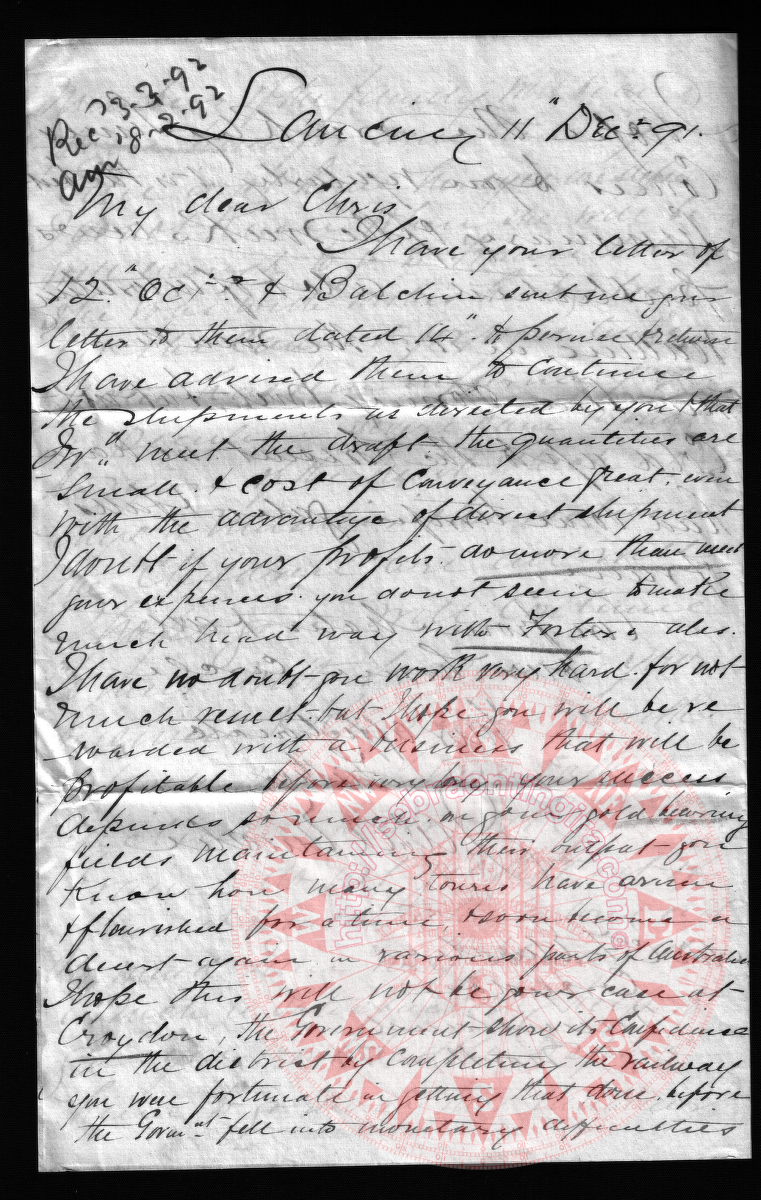 23-3-92
Rec 18-3-92
Lancing 11" Dec. 91.
My dear Chris
I have your letter of
12." Oct. & Balchin sent me your
letter to them dated 14". to peruse & return
I have advised them to continue
the shipments as directed by you & that
meet the draft the quantities are
small. & cost of conveyance great. even
with the advantage of direct shipment
I doubt if your profits. do more than meet
your expenses. you do not seem to make
much head way with Fosters ales.
I have no doubt you work very hard. for not
much result. but I hope you will be re
-warded with a business that will be
profitable before very long your success
depends so much on your gold bearing
fields maintaining their output you
know how many towns have arisen
& flourished for a time, & soon become a
desert again in various parts of Australia
I hope this will not be your case at
Croydon, the Government show its confidence
in the district by completing the railway
you were fortunate in getting that done, before
the Governt. fell into monetary difficulties
http://sopramningia.com